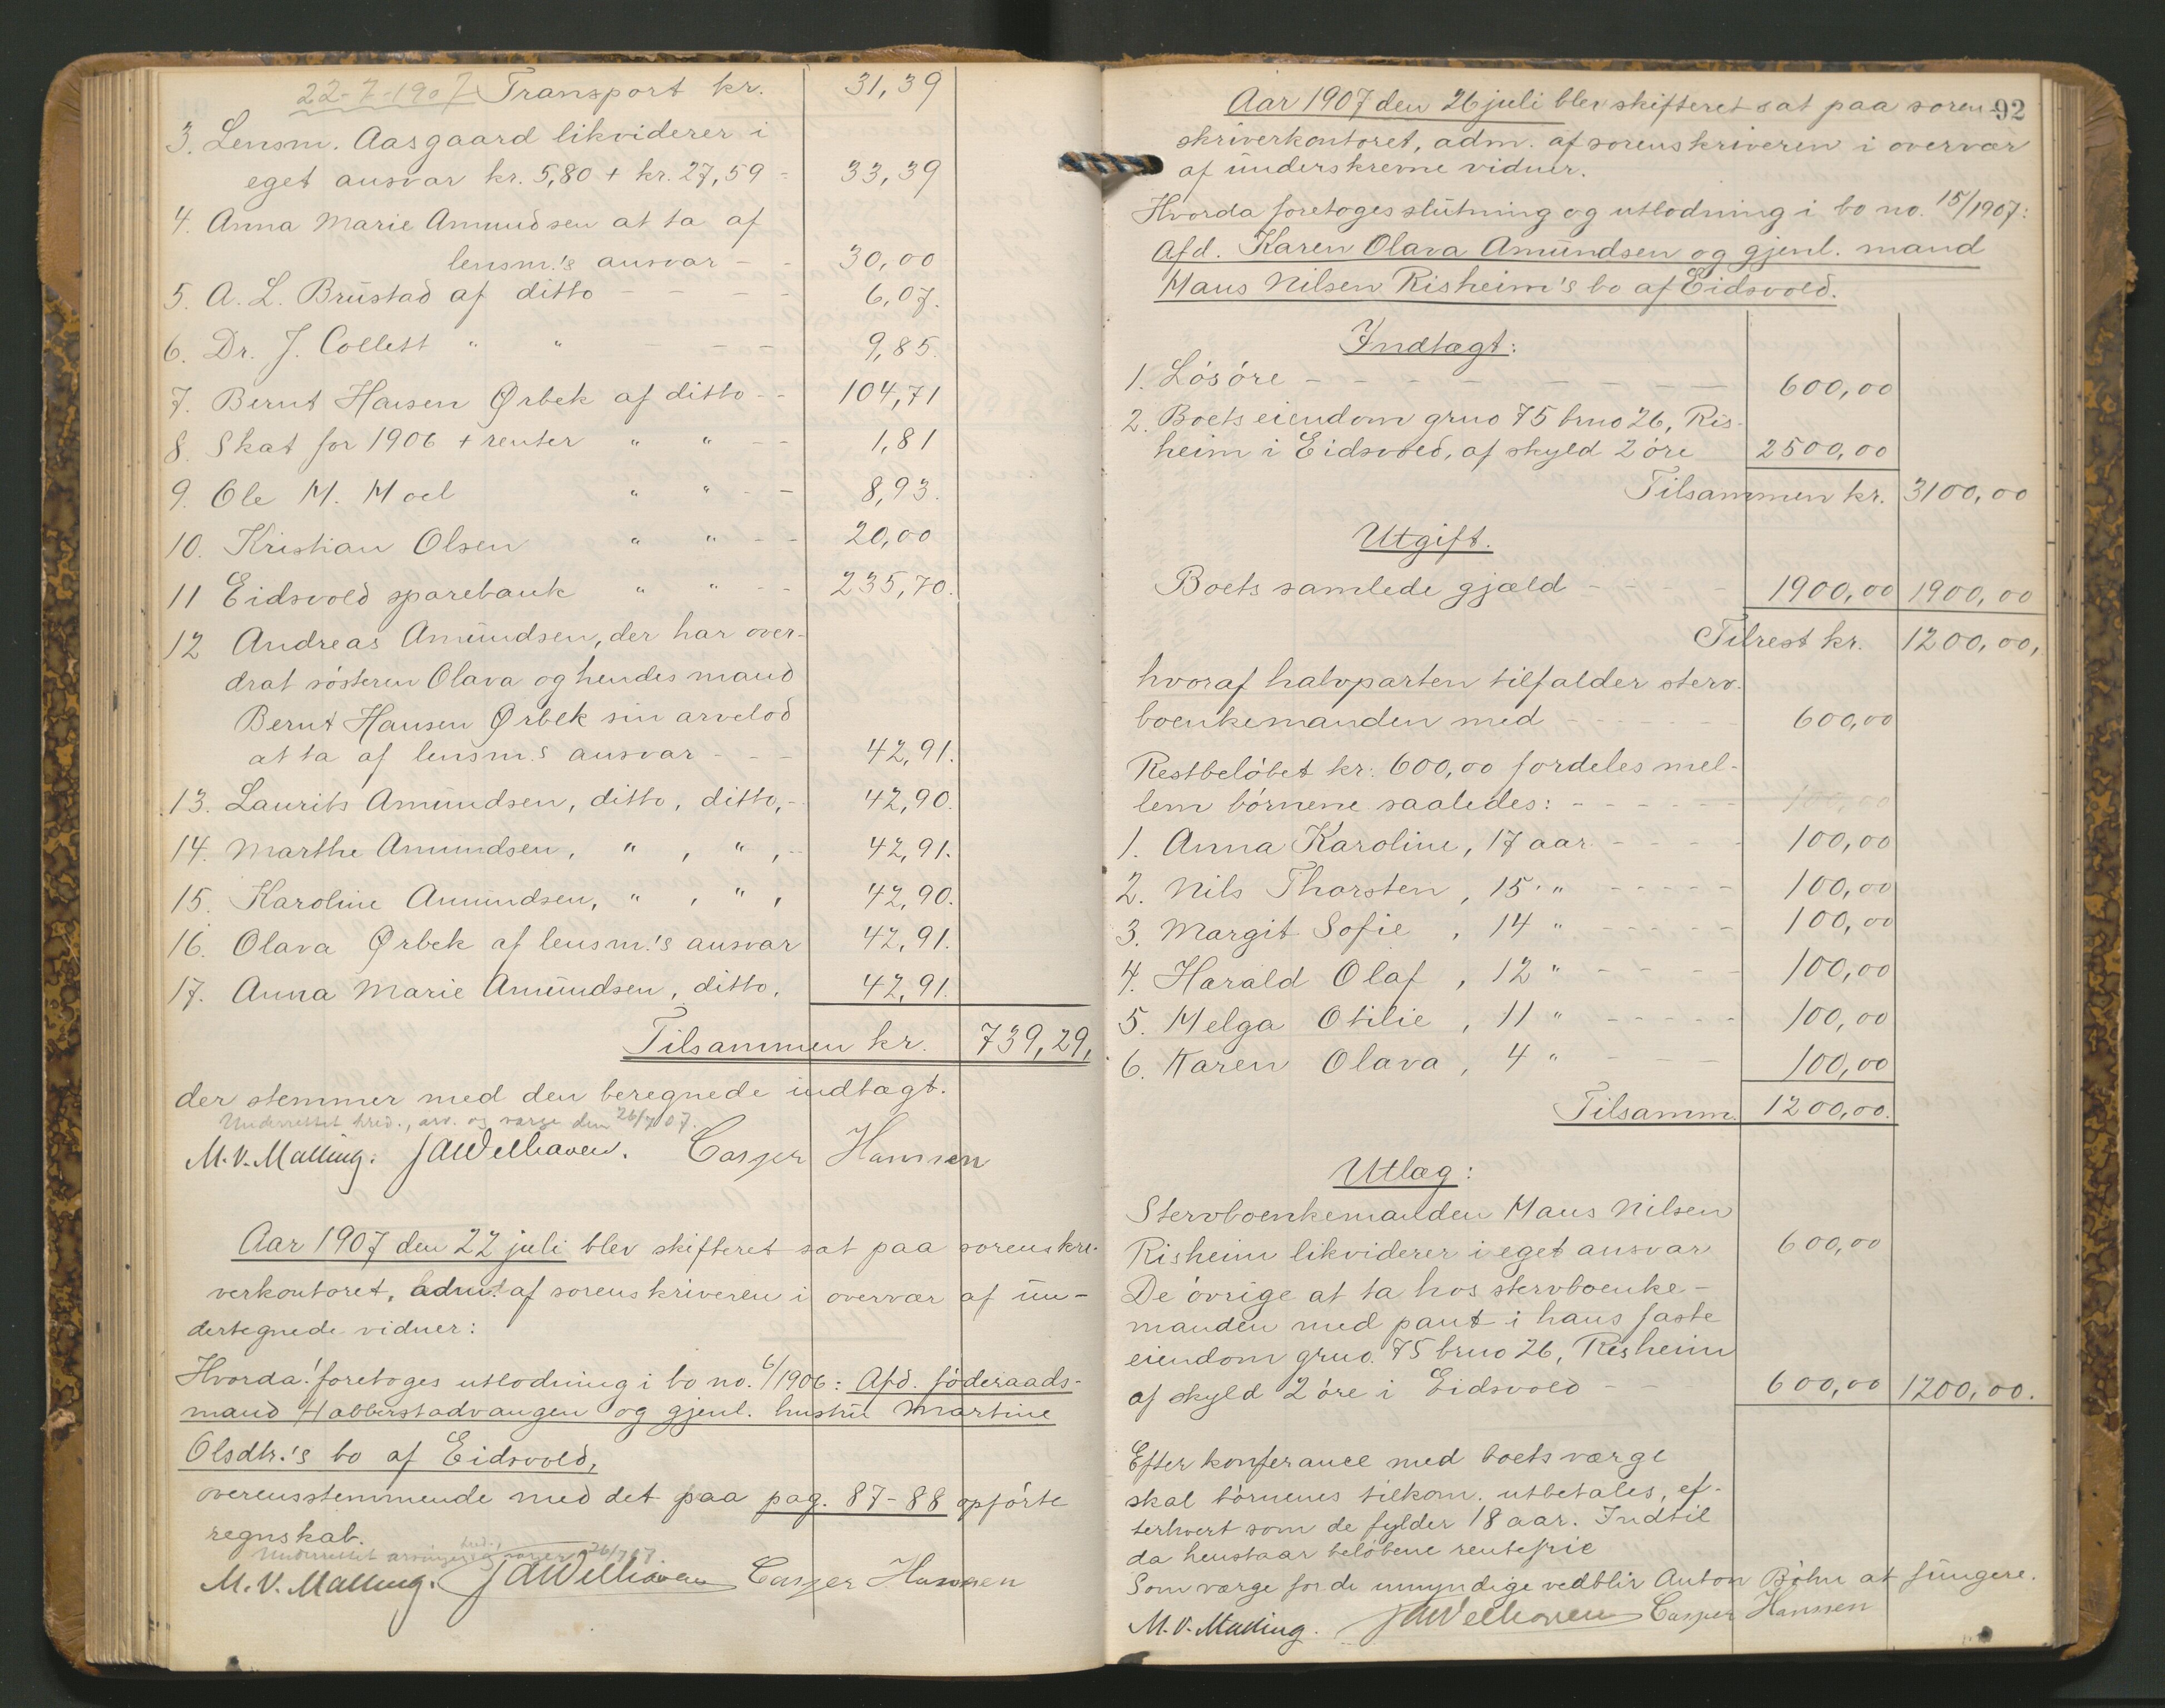 22-7-1907 Transport kr. 31,39
3. Lensm. Aasgaard likviderer i
eget ansvar kr. 5,80 + kr. 27,59 - 33,39
4. Anna Marie Amundsen at ta af
lensm.'s ansvar - - 30,00
5. A. L. Brustad af ditto - - - - 6,07.
6. Dr. J. Collett " " - - - 9,85.
7. Bernt Hansen Ørbek af ditto - - 104,71
8. Skat for 1906 + renter " " - - 1,81
9. Ole M. Moel " " - - 8,93.
10. Kristian Olsen " " - - 20,00
11 Eidsvold sparebank " " - - 235,70.
12 Andreas Amundsen, der har over-
drat søsteren Olava og hendes mand
Bernt Hansen Ørbek sin arvelod
at ta af lensm.'s ansvar - - - 42,91.
13. Laurits Amundsen, ditto, ditto, - 42,90.
14. Marthe Amundsen, " , " , - 42,91.
15. Karoline Amundsen, " , " , 42,90.
16. Olava Ørbek af lensm.'s ansvar 42,91.
17. Anna Marie Amundsen, ditto, 42,91.
Tilsammen kr. 739,29.
der stemmer med den beregnede indtægt.
Underrettet kred., arv. og værge den 26/7 07.
M. V. Malling. JAWelhaven. Casper Hanssen
Aar 1907 den 22 juli blev skifteret sat paa sorenskri-
verkontoret, adm. af sorenskriveren i overvær af un-
dertegnede vidner:
Hvorda: foretoges utlodning i bo no. 6/1906: Afd. føderaads-
mand Habberstadvangen og gjenl. hustru Martine
Olsdtr.'s bo af Eidsvold,
overensstemmende med det paa pag. 87-88 opførte
regnskab.
Underrettet arvinger og værger 26/7 07.
M. V. Malling. JAWelhaven Casper Hanssen
92
Aar 1907 den 26 juli blev skifteret sat paa soren-
skriverkontoret, adm. af sorenskriveren i overvær
af underskrevne vidner.
Hvorda foretoges slutning og utlodning i bo no. 15/1907:
Afd. Karen Olava Amundsen og gjenl. mand
Hans Nilsen Risheim's bo af Eidsvold.
Indtægt:
1. Løsøre - - - - - - - - - 600,00
2. Boets eiendom gruo 75 bruo 26, Ris-
heim i Eidsvold, af skyld 2 øre 2500,00
Tilsammen kr. 3100,00
Utgift.
Boets samlede gjæld - - - - 1900,00 1900,00
Tilrest kr. 1200,00,
hvoraf halvparten tilfalder sterv-
boenkemanden med - - - - - - 600,00
Restbeløbet kr. 600,00 fordeles mel-
lem børnene saaledes: - - - - - - 100,00
1. Anna Karoline, 17 aar - - - - 100,00
2. Nils Thorsten, 15 " - - - - - 100,00
3. Margit Sofie, 14 " - - - - - 100,00
4. Harald Olaf, 12 " - - - - 100,00
5. Helga Otilie, 11 " - - - - - 100,00
6. Karen Olava, 4 " - - - 100,00
Tilsamm. 1200,00.
Utlæg:
Stervboenkemanden Hans Nilsen
Risheim likviderer i eget ansvar 600,00
De øvrige at ta hos stervboenke-
manden med pant i hans faste
eiendom gruo. 75 bruo 26, Risheim
af skyld 2 øre i Eidsvold - - 600,00 1200,00.
Efter konferance med boets værge
skal børnenes tilkom. utbetales, ef-
terhvert som de fylder 18 aar. Indtil
da henstaar beløbene rentefrie
Som værge for de umyndige vedblir Anton Bøhn at fungere.
M. V. Malling. JAWelhaven Casper Hanssen